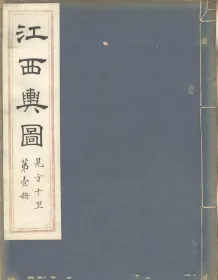 江西輿圖
見方十里
第壹册